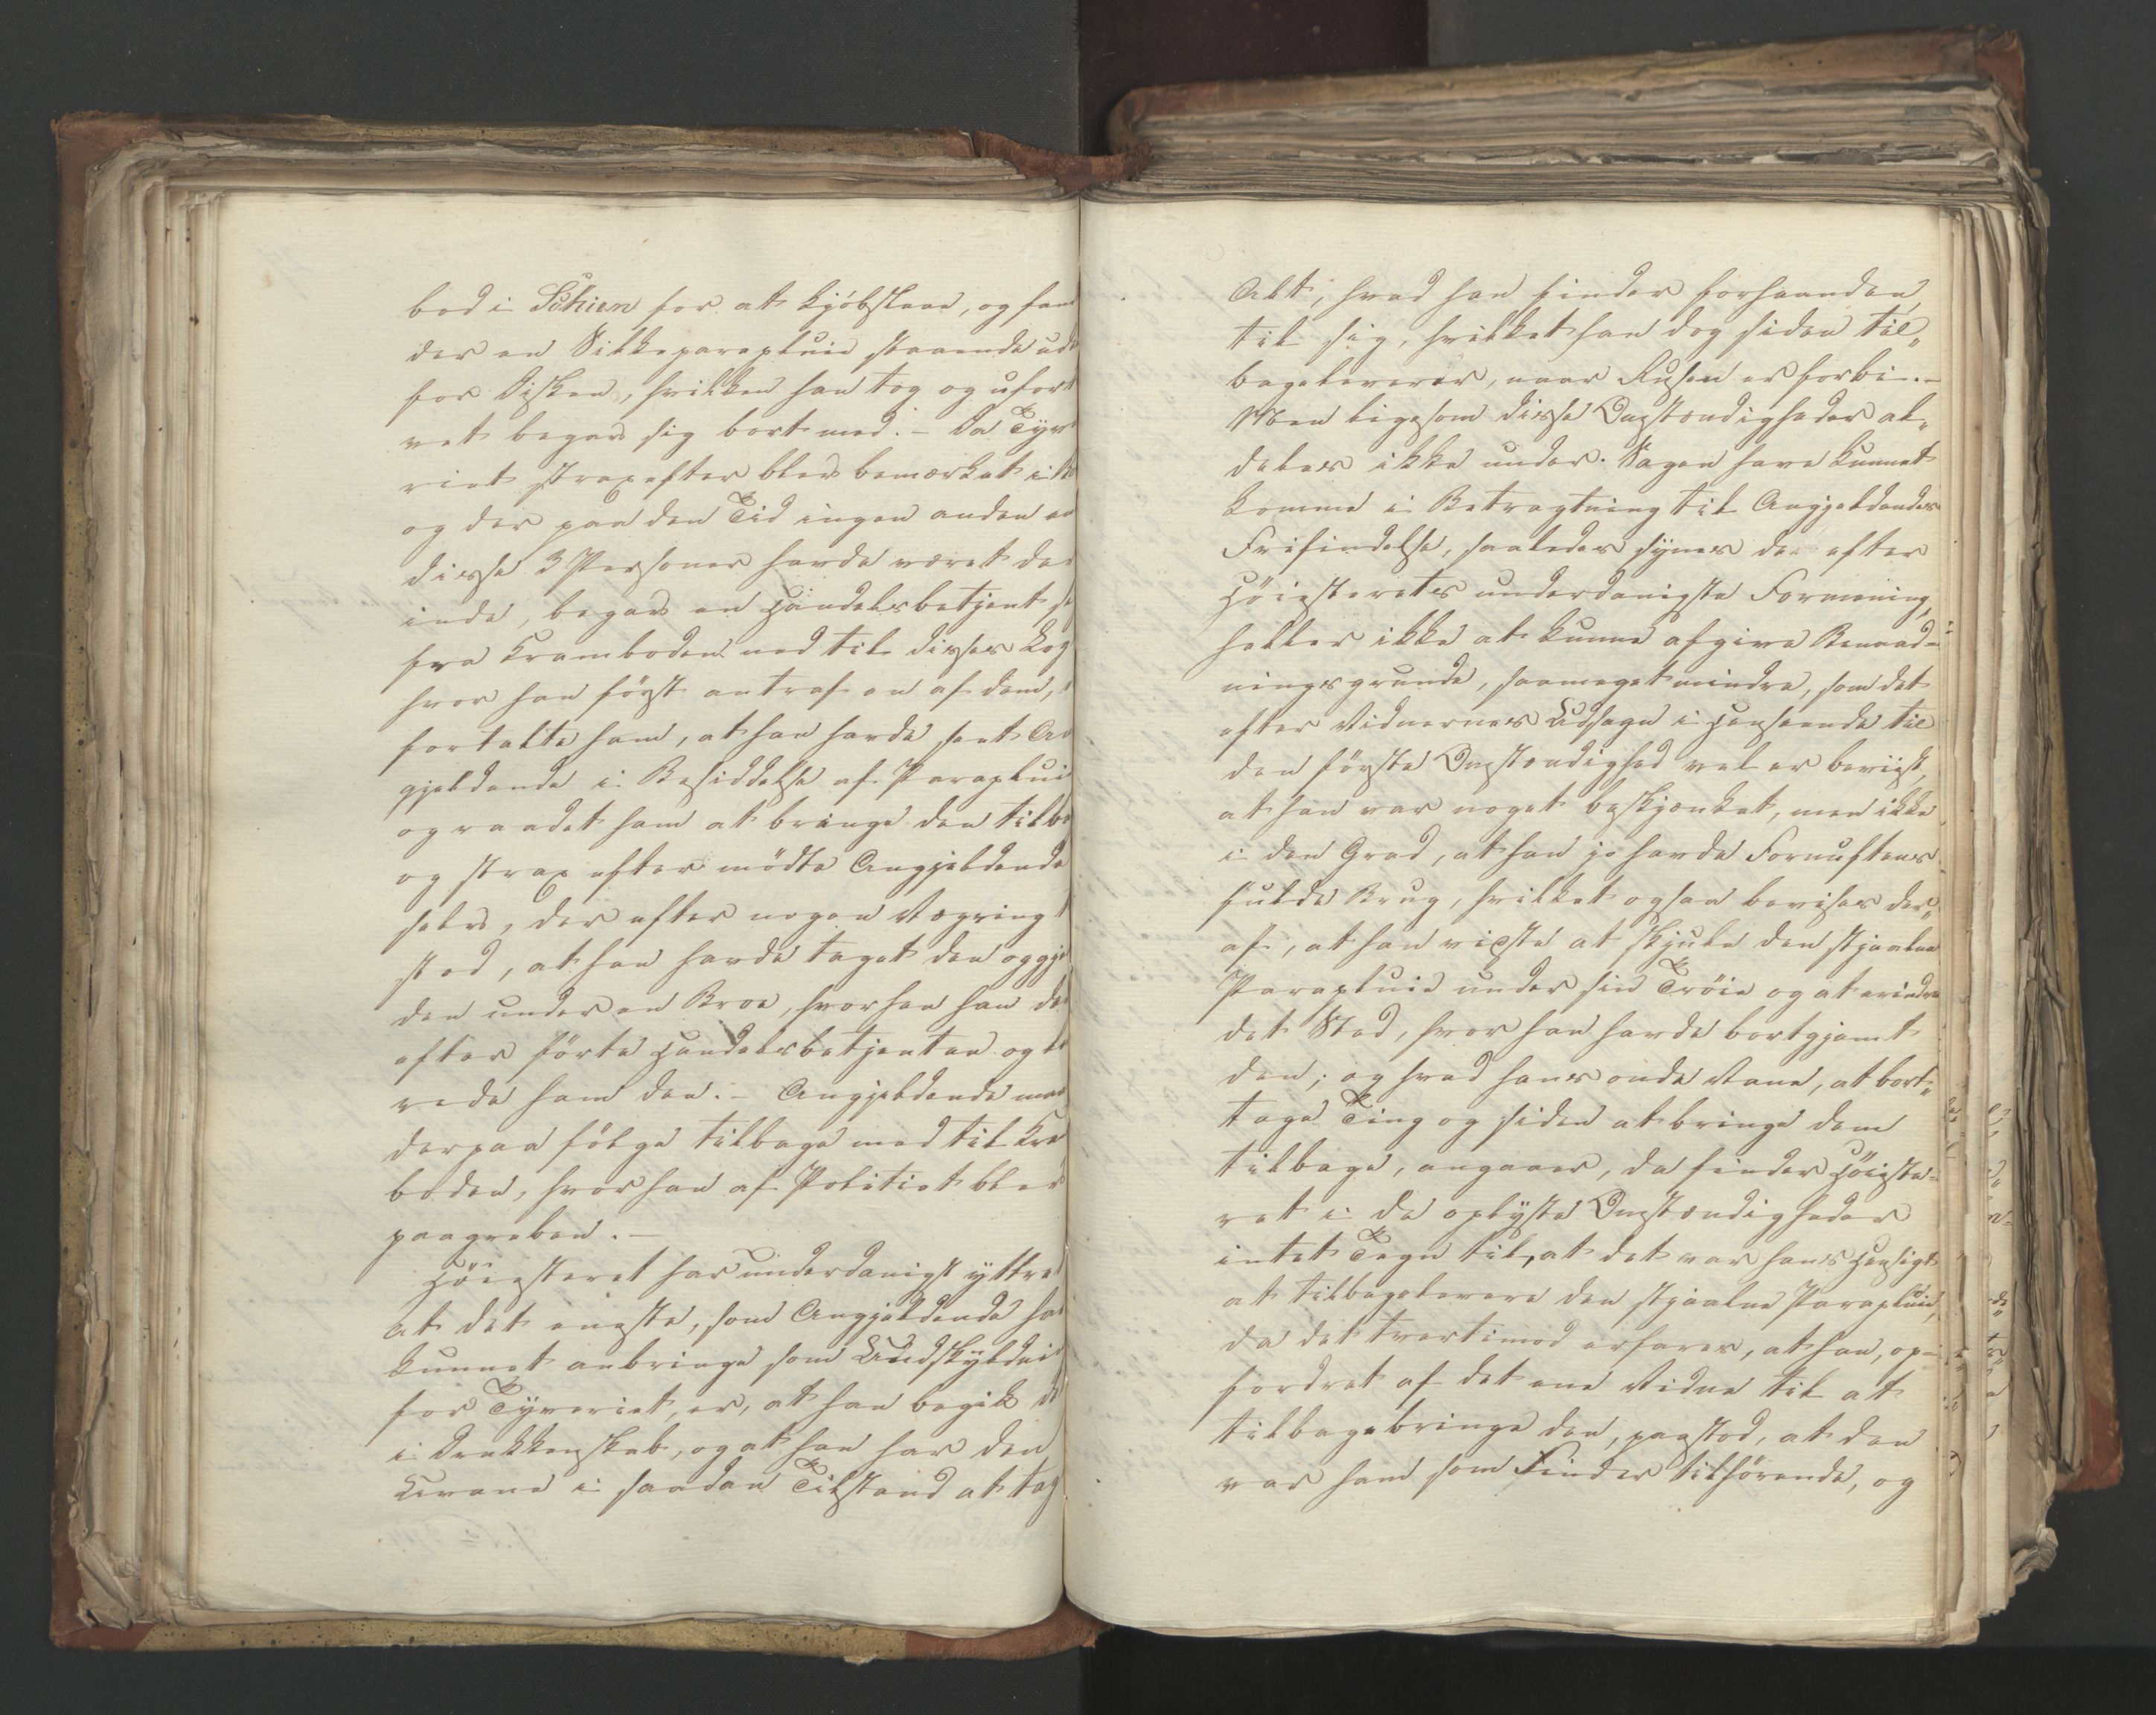 bod i Schien for at kjöbslaae, og fan
der en Silkeparapluie staaende ude
for Disken, hvilken han tog og ufor
vet begav sig bort med. - Da Tyv
riet strax efter blev bemærket i B
og der paa den Tid ingen anden en
disse 3 Personer havde været der
inde, begav en Handelsbetjent sig
fra Kramboden ned til disses Log
hvor han först antraf en af dem, s
fortalte ham, at han havde seet An
gjeldende i Besiddelse af Parapluie
og raadet ham at bringe den tilba
og strax efter mödte Angjeldende
selv, der efter nogen Vægring t
stod, at han havde taget den og gje
den under en Broe, hvorhen han der
efter förte Handelsbetjenten og le
rede ham den. - Angjeldende maa
derpaa fölge tilbage med til Kra
boden, hvor han af Politiet blev
paagreben. -
Höiesteret har underdanigst yttret
at det eneste, som Angjeldende har
kunnet anbringe som Undskyldni
for Tyveriet, er, at han begik de
i Drukkenskab, og at han har den
Uvane i saadan Tilstand at tag
Alt, hvad han finder forhaanden,
til sig, hvilket han dog siden til„
bageleverer, naar Rusen er forbi. -
Men ligesom disse Omstændigheder al„
deles ikke under Sagen have kunnet
komme i Betragtning til Angjeldendes
Frifindelse, saaledes synes de efter
Höiesterets underdanigste Formening,
heller ikke at kunne afgive Benaad-
ningsgrunde, saameget mindre, som det
efter Vidnernes Udsagn i Henseende til
den förste Omstændighed vel er beviist,
at han var noget beskjænket, men ikke
i den Grad, at han jo havde Fornuftens
fulde Brug, hvilket ogsaa bevises der„
af, at han vidste at skjule den stjaalne
Parapluie under sin Tröie og at erindre
det Sted, hvor han havde bortgjemt
den; og hvad hans onde Vane, at bort„
tage Ting og siden at bringe dem
tilbage, angaaer, da finder Höieste-
ret i de oplyste Omstændigheder
intet Tegn til, at det var hans Hensigt
at tilbagelevere den stjaalne Parapluie,
da det tvertimod erfares, at han, op-
fordret af det ene Vidne til at
tilbagebringe den, paastod, at den
var ham som Finder tilhörende, og